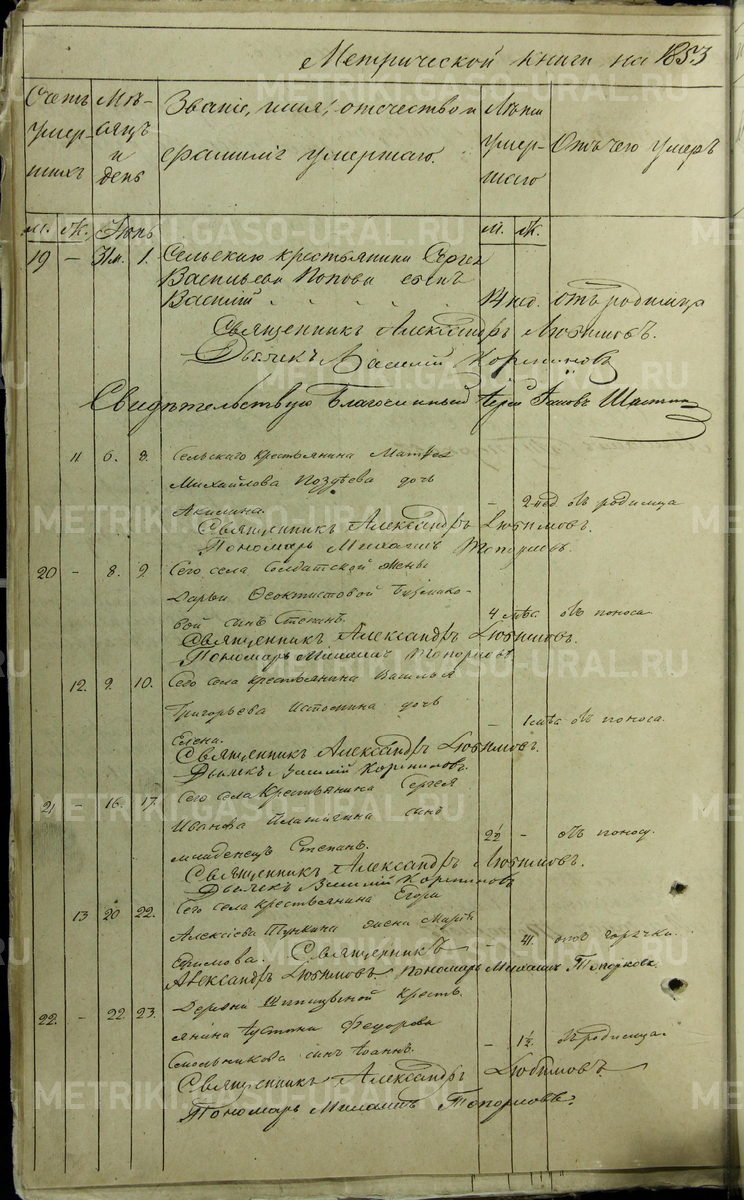 Метрической книги на 1853
Счетъ умер-шихъ | Мѣ-сяцъ и день | Званіе, имя, отчество и фамилія умершаго. | Лѣта умер-шаго | Отъ чего умеръ
м. ж. Іюнь м. ж.
19 – 31м. 1. Сельскаго крестьянина Сергея
Васильева Попова сынъ
Василий 14 нед. отъ родимца
Священникъ Александръ Любимовъ.
Дьячекъ Василий
Свидѣтельствую Благочинный Іерей Іаковъ
11 6. 8. Сельскаго крестьянина
Михайлова Поздѣева дочь
Акилина. – 2 нед отъ родимца
Священникъ Александръ Любимовъ.
Пономарь Михаилъ Топорковъ.
20 – 8. 9. Сего села Солдатской жены
Дарьи Ѳеоктистовой
вой сынъ Степанъ. 4 мѣс. отъ поноса.
Священникъ Александръ Любимовъ.
Пономарь Михаилъ Топорковъ
12. 9. 10. Сего села крестьянина Василья
Григорьева дочь
Елена. – 1 мѣс отъ поноса.
Священникъ Александръ Любимовъ.
Дьячекъ Василий
21 – 16. 17. Сего села Крестьянина Сергея
Иванова сынъ
младенецъ Степанъ. 2½ – отъ поноса.
Священникъ Александръ Любимовъ.
Дьячекъ Василий
13 20 22. Сего села крестьянина Егора
Алексѣева жена Марія
Ефимова. Священникъ – 41. отъ горячки.
Александръ Любимовъ. Пономарь Михаилъ Топорковъ.
22. – 22. 23. Деревни кресть-
янина Іустина Федорова
Смольникова сынъ Іоаннъ. – 1½. отъ родимца.
Священникъ Александръ Любимовъ.
Пономарь Михаилъ Топорковъ.
METRIKI.GASO-URAL.RU